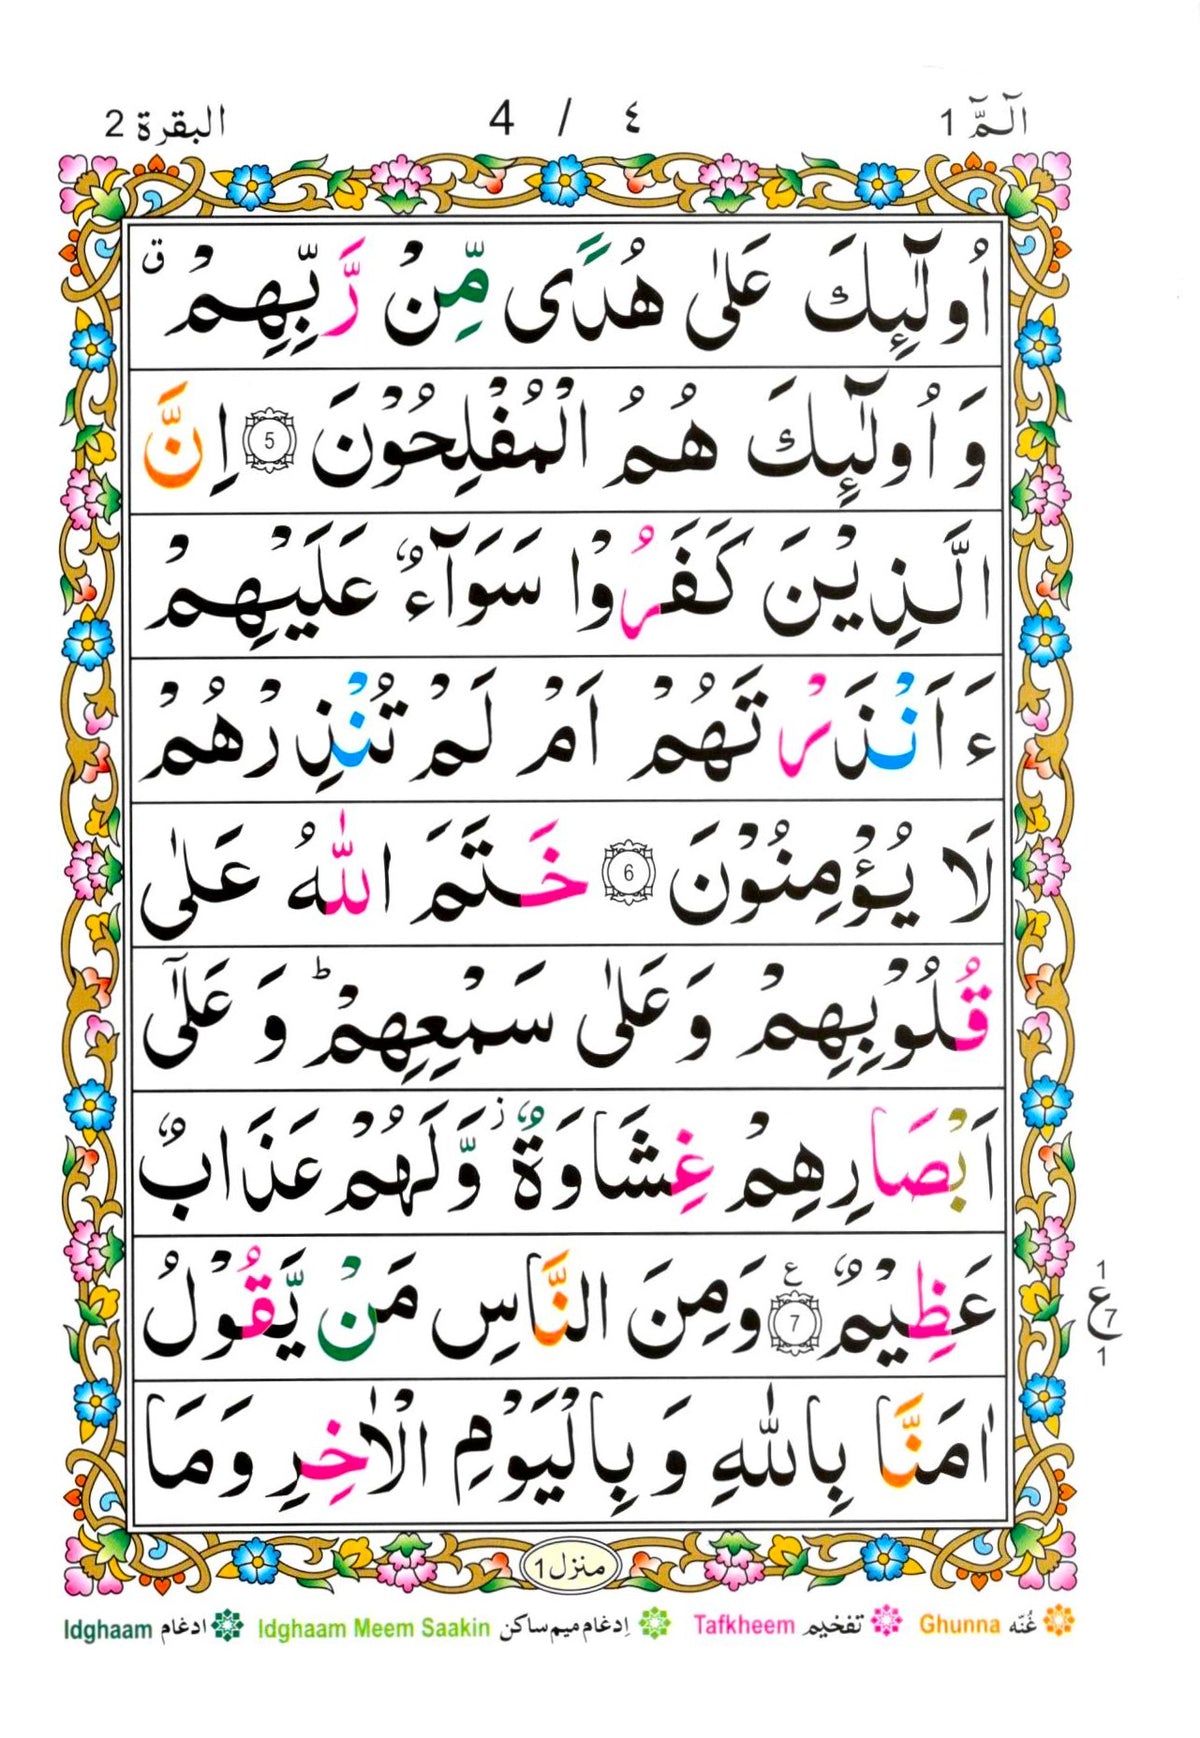 الٓمّٓ 1
٤ / 4
البقرة 2
اُولٰٓئِكَ عَلٰى هُدًى مِّنْ رَّبِّهِمْ ق
وَ اُولٰٓئِكَ هُمُ الْمُفْلِحُوْنَ 5 اِنَّ
الَّذِيْنَ كَفَرُوْا سَوَآءٌ عَلَيْهِمْ
ءَاَنْذَرْتَهُمْ اَمْ لَمْ تُنْذِرْهُمْ
لَا يُؤْمِنُوْنَ 6 خَتَمَ اللّٰهُ عَلٰى
قُلُوْبِهِمْ وَعَلٰى سَمْعِهِمْ ؕ وَ عَلٰٓى
اَبْصَارِهِمْ غِشَاوَةٌ ز وَّلَهُمْ عَذَابٌ
عَظِيْمٌ 7 ع وَمِنَ النَّاسِ مَنْ يَّقُوْلُ
1
ع 7
1
اٰمَنَّا بِاللّٰهِ وَ بِالْيَوْمِ الْاٰخِرِ وَمَا
منزل 1
Ghunna غُنّه Tafkheem تفخيم Idghaam Meem Saakin اِدغام ميم ساكن Idghaam ادغام